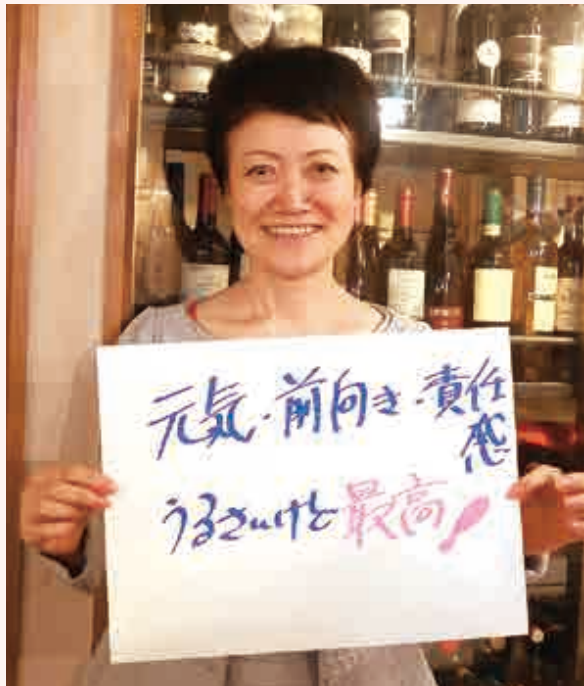 元気・前向き・責任感
うるさいけど最高!